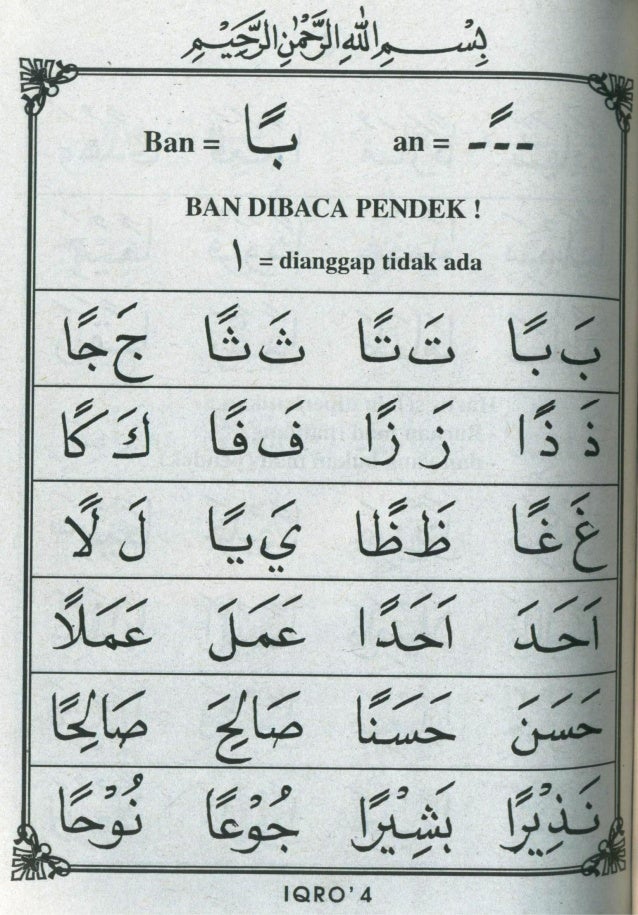 بِسْمِ اللهِ الرَّحْمٰنِ الرَّحِيْمِ
Ban = بًا an = ---ً
BAN DIBACA PENDEK !
ا = dianggap tidak ada
بَ بًا تَ تًا ثَ ثًا جَ جًا
ذَ ذًا زَ زًا فَ فًا كَ كًا
غَ غًا ظَ ظًا يَ يًا لَ لًا
اَحَدَ اَحَدًا عَمَلَ عَمَلًا
حَسَنَ حَسَنًا صَالِحَ صَالِحًا
نَذِيْرًا بَشِيْرًا جُوْعًا نُوْحًا
IQRO' 4